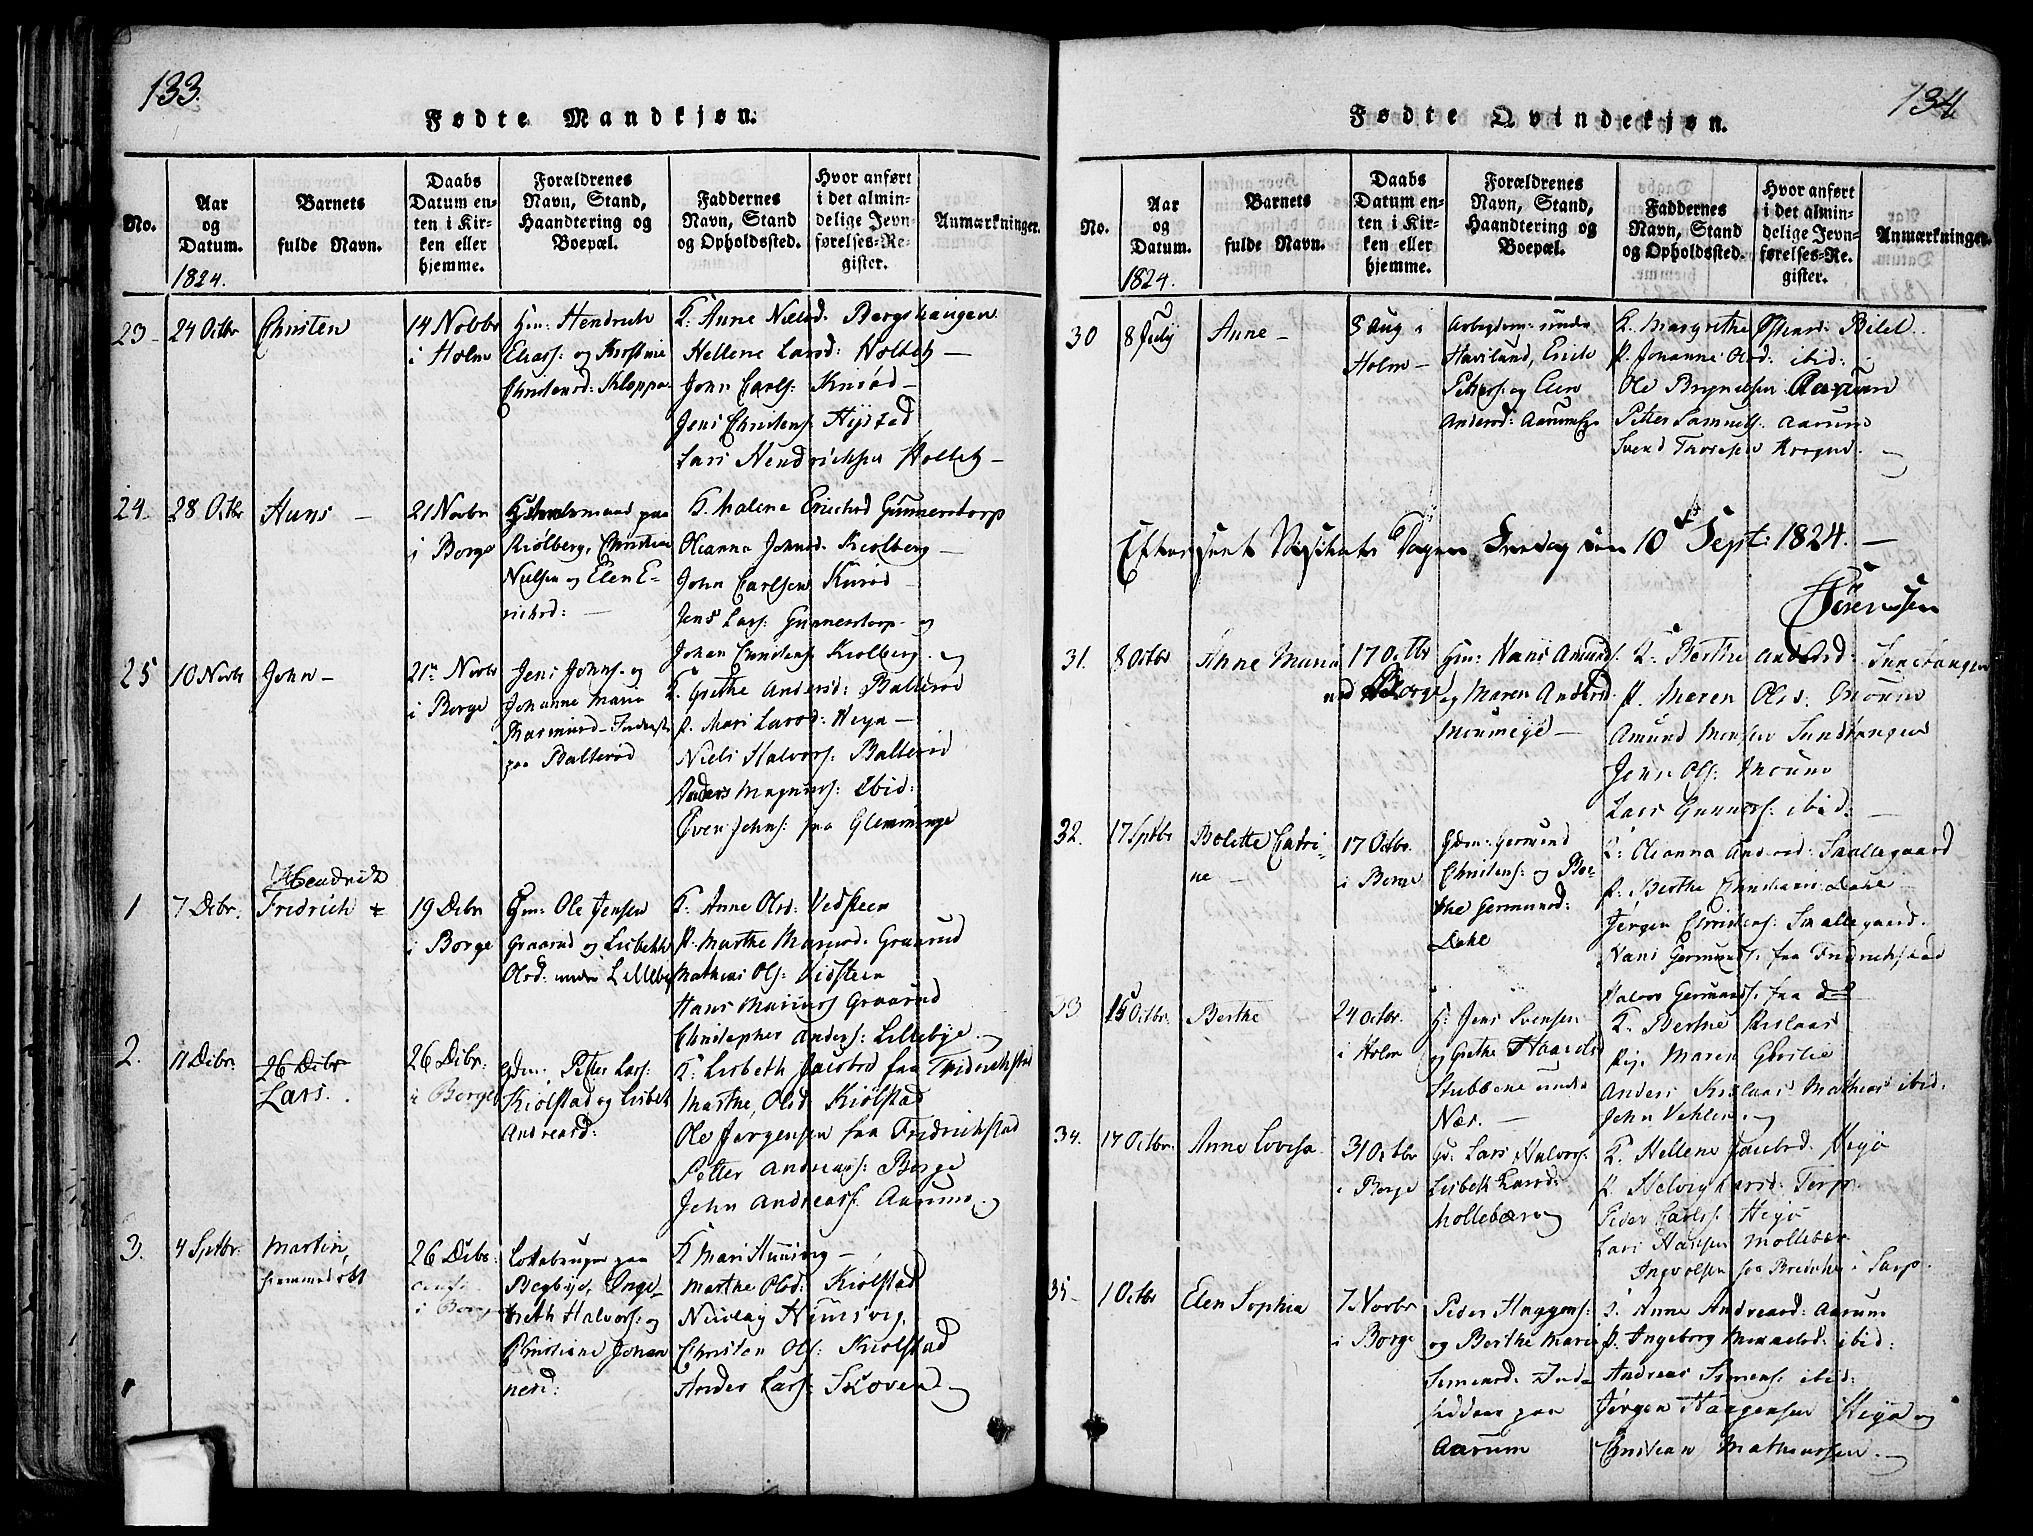 133.
Fødte Mandkjøn.
No.
Aar
og
Datum.
1824.
Barnets
fulde Navn.
Daabs
Datum en-
ten i Kir-
ken eller
hjemme.
Forældrenes
Navn, Stand,
Haandtering og
Boepæl.
Faddernes
Navn, Stand
og Opholdssted.
Hvor anført
i det almin-
delige Jevn-
førelses-Re-
gister.
Anmærkninger.
23 - 24 Octbr
Christen
14 Novbr
i Holm
Hm: Hendrich
Eliass: og Kirstine
Christensd: Kloppa
F. Anne Nielsd: Berghaugen
Hellene Larsd: Holtet -
John Carls: Knrød -
Jens Christens: Hystad
Lars Hendrichsen Holtet -
24. 28 Octbr
Hans -
21 Novbr
i Borge
paa
Kiølberg, Christian
Nielsen og Elen E-
richsd: -
F. Malene Erichsd Gunnerstorp
Oleanna Johnsd. Kiolberg -
John Carlsen Knrød -
Jens Lars: Gunnerstorp og
Johan Christens Kiolberg. og
25 10 Novbr
John -
21n Novbr
i Borge
Jens Johns: og
Johanne Maria
Rasmusd - Inderst
paa Balterød
F. Grethe Andersd: Balterød
P. Mari Larsd: Heya -
Niels Halvors: Balterød
Anders Magnuss: ibid:
Sven Johns: fra Glemminge
1 7 Debr.
Hendrick
Fredrich +
19 Debr
i Borge
Gm: Ole Jensen
Graarud og Lisbeth
Olsd: under Lilleby
F. Anne Olsd: Vidsteen
P. Marthe Mariusd: Graarud
Mathias Ols: Vidsteen
Hans Mariuss Graarud
Christopher Anders: Lillebye.
2. 11 Debr.
26 Debr
Lars.
26 Debr:
i Borge
Gdm: Petter Lars:
Kiolstad og Lisbet
Andreasd:
F. Lisbeth Jacobsd fra Fridrichstad
Marthe Olsd Kiolstad
Ole Jørgensen fra Fridrichstad
Petter Andreass: Borge
John Andreass. Aarum. og
3. 4 Sptbr.
Martin,
hjemmedøbt
26 Debr:
i Borge
paa
Begbye, Inge-
breth Halvors: og
Christiane Johan
nesd:
F Mari Hunsvig -
Marthe Olsd: Kiolstad
Nicolay Hunsvig,
Christen Ols: Kiolstad
Anders Lars: Skoven og
134
Fødte Qvindekjøn.
No.
Aar
og
Datum.
1824.
Barnets
fulde Navn.
Daabs
Datum en-
ten i Kir-
ken eller
hjemme.
Forældrenes
Navn, Stand,
Haandtering og
Boepæl.
Faddernes
Navn, Stand
og Opholdssted.
Hvor anført
i det almin-
delige Jevn-
førelses-Re-
gister.
Anmærkninger.
30 8 July
Anne -
8 Aug i
Holm -
Arbeydsm: under
Havslund, Erich
Petters: og Elen
Andersd: Aarum Eje
F. Margrethe Bilet
P. Johanne Olsd: ibid:
Ole Brynelsen Aarum
Petter Samuels. Aarum
Svend Thoresen Krogen. -
Efterseet Visitats Dagen Fredag den 10de Sept: 1824. -
Sørenssen
31. 8 Octbr
Anne Maria
17 Octbr
ved Borge
Hm: Hans Amunds
og Maren Andersd
Mouneije -
F. Berthe Andersd: Sundtangen
P. Maren Olsd: Moum
Amund Monsen Sundtangen
John Ols: Moum
Lars Gunners: ibid:
32. 17 Sptbr
Bolette Catri-
ne -
17 Octbr.
i Borge
Gdm: Germund
Christens: og Ber-
the Germunsd:
Dahl
F: Olianna Andersd: Smallegaard
P. Berthe Christians: Dahl -
Jørgen Christens: Smallegaard.
Hans Germunds. fra Fridrichstad
Halvor Germunds. fra do
33 15 Octbr.
Berthe
24 Octbr.
i Holm
H: Jens Svensen
og Grethe Haagensd
Stubbene under
Næs. -
F. Berthe Rislaas
Pig. Maren Gloslie
Anders Rislaas Mathias ibid:
John Vehlen. og
34. 17 Octbr.
Anne Lovisa
31 Octbr
i Borge
Gd: Lars Halvors:
Lisbeth Larsd:
Mollebæren
F. Hellene Jacobsd. Heyo
P. Helvig Larsd: Torp.
Peder Carls: Heyo
Lars Hansen Mollebær
35 - 1 Octbr
Elen Sophia
7 Novbr
i Borge
Peder Haggens:
og Berthe Marie
Simensd: Ind-
sidder paa
Aarum
F. Anne Andreasd: Aarum
P. Ingeborg ibid:
Andreas Simens: ibid:
Jørgen Haagensen Heyo og
Christian Mathiassen. -